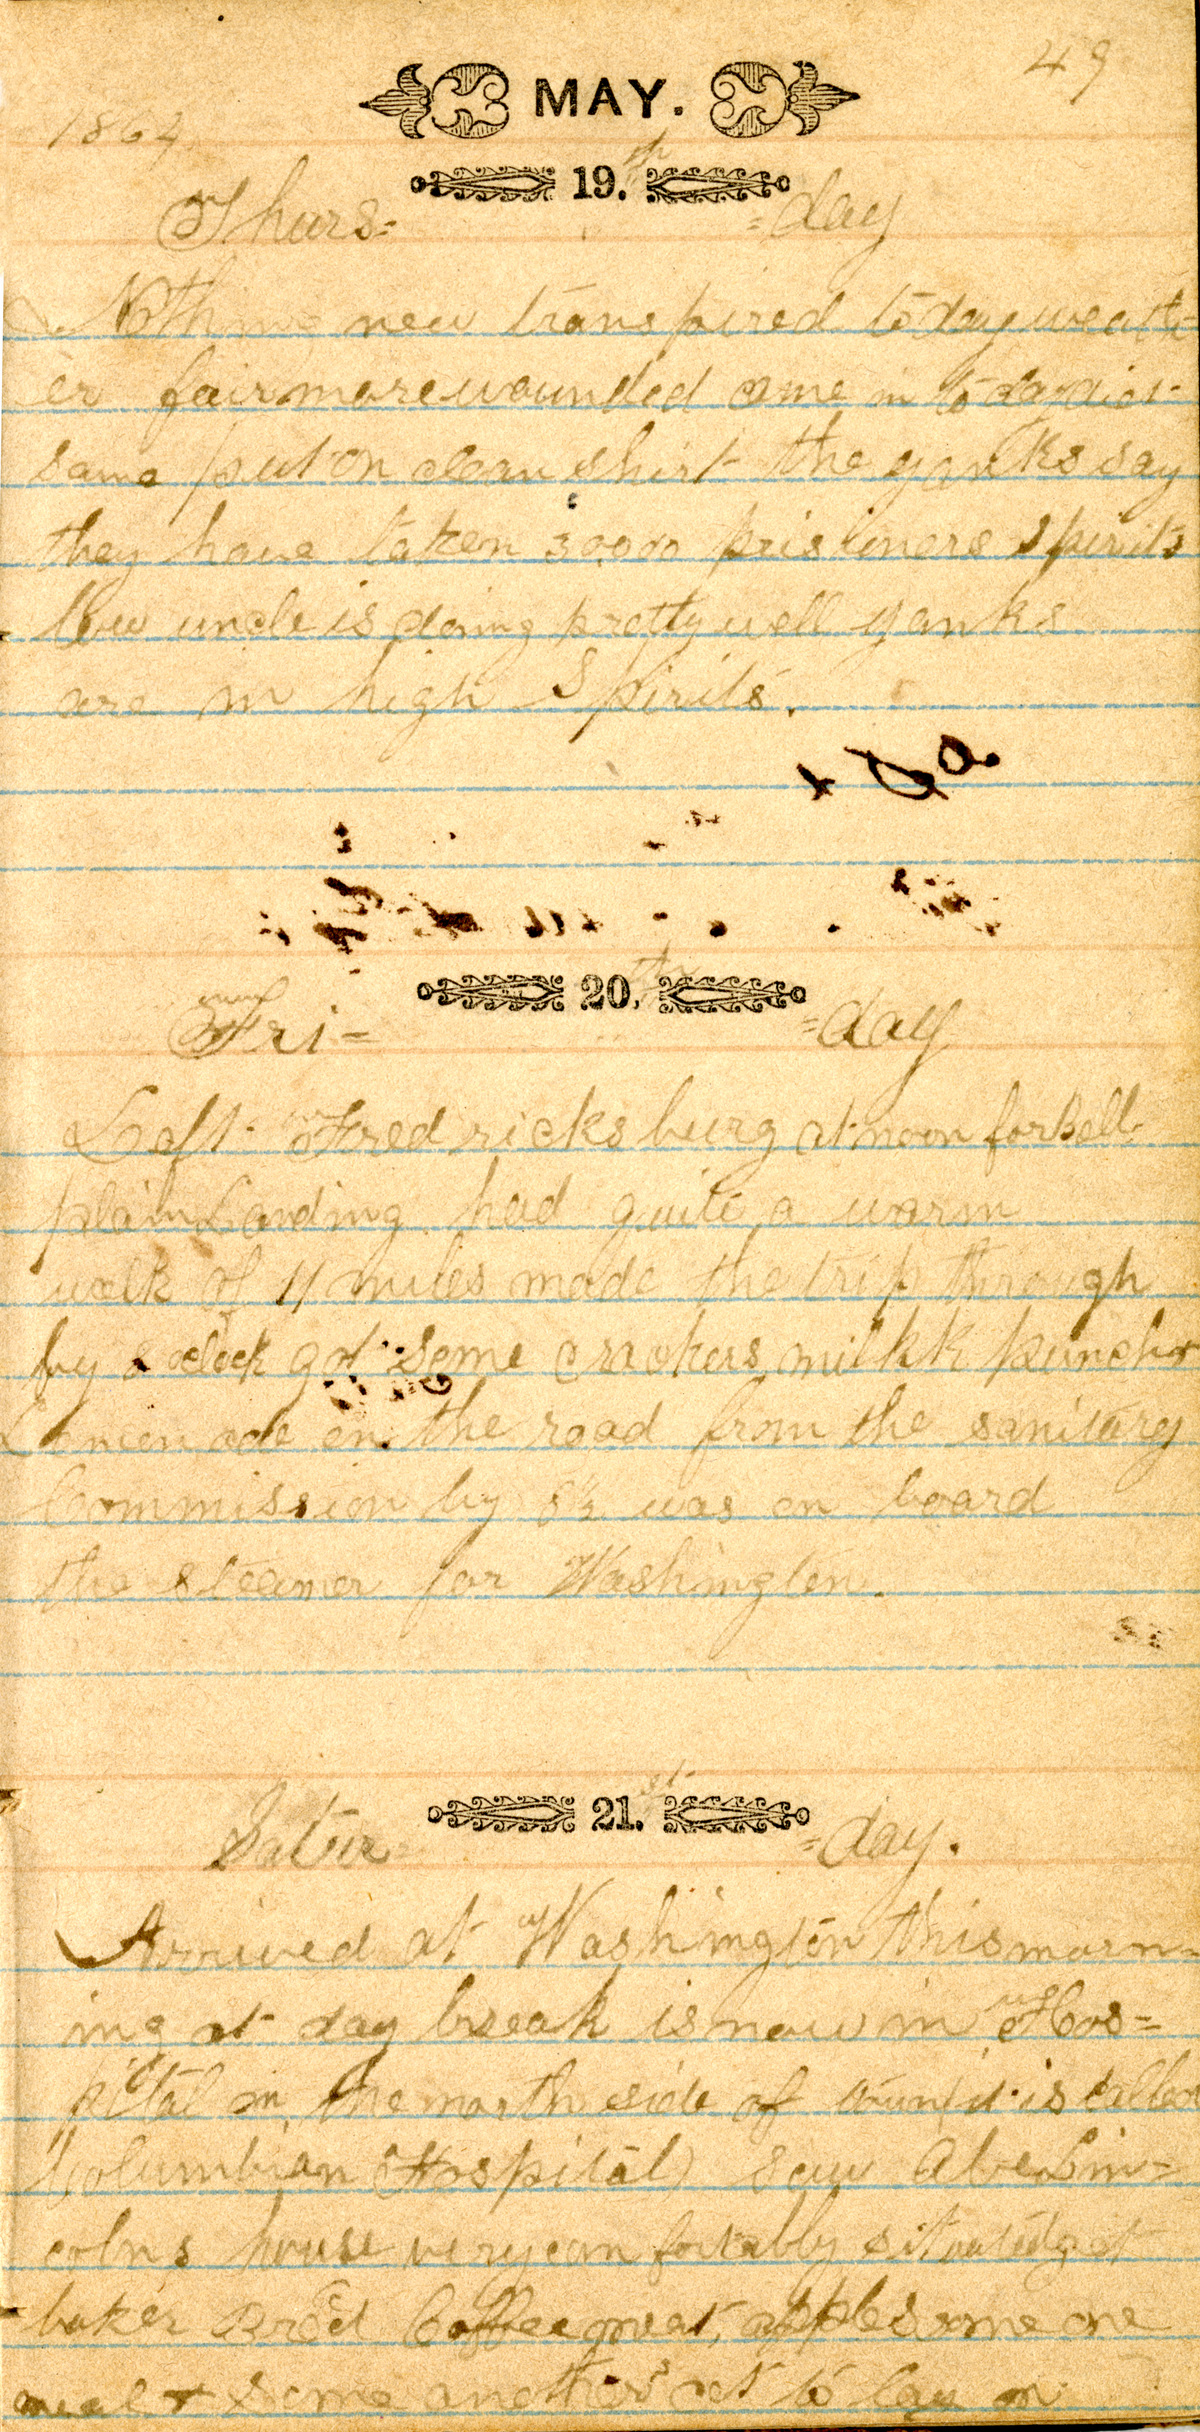 49
MAY.
1864
19.th
Thurs= =day
Nothing new transpired today weath=
er fair more wounded came in to day diet
same put on clean shirt the yanks say
they have taken 30000 prisiners Spirits
low uncle is doing pretty well yanks
are in high Spirits.
20.th
Fri= =day
Left Fredricksburg at noon for Bell
plain Landing had quite a warm
walk of 11 miles made the trip through
by oclock got some crackers milkk punch &
Lemen ade on the road from the sanitary
Commission by 5½ was on board
the steamer for Washington.
21.st
Satur =day.
Arrived at Washington this morn=
ing at day break is now in Hos=
pital in the north side of town (it is called
Columbian Hospital) saw Abe Lin=
colns house very comfortably situated get
baker bred Coffee meat, apples some one
meal & some another cot to lay on